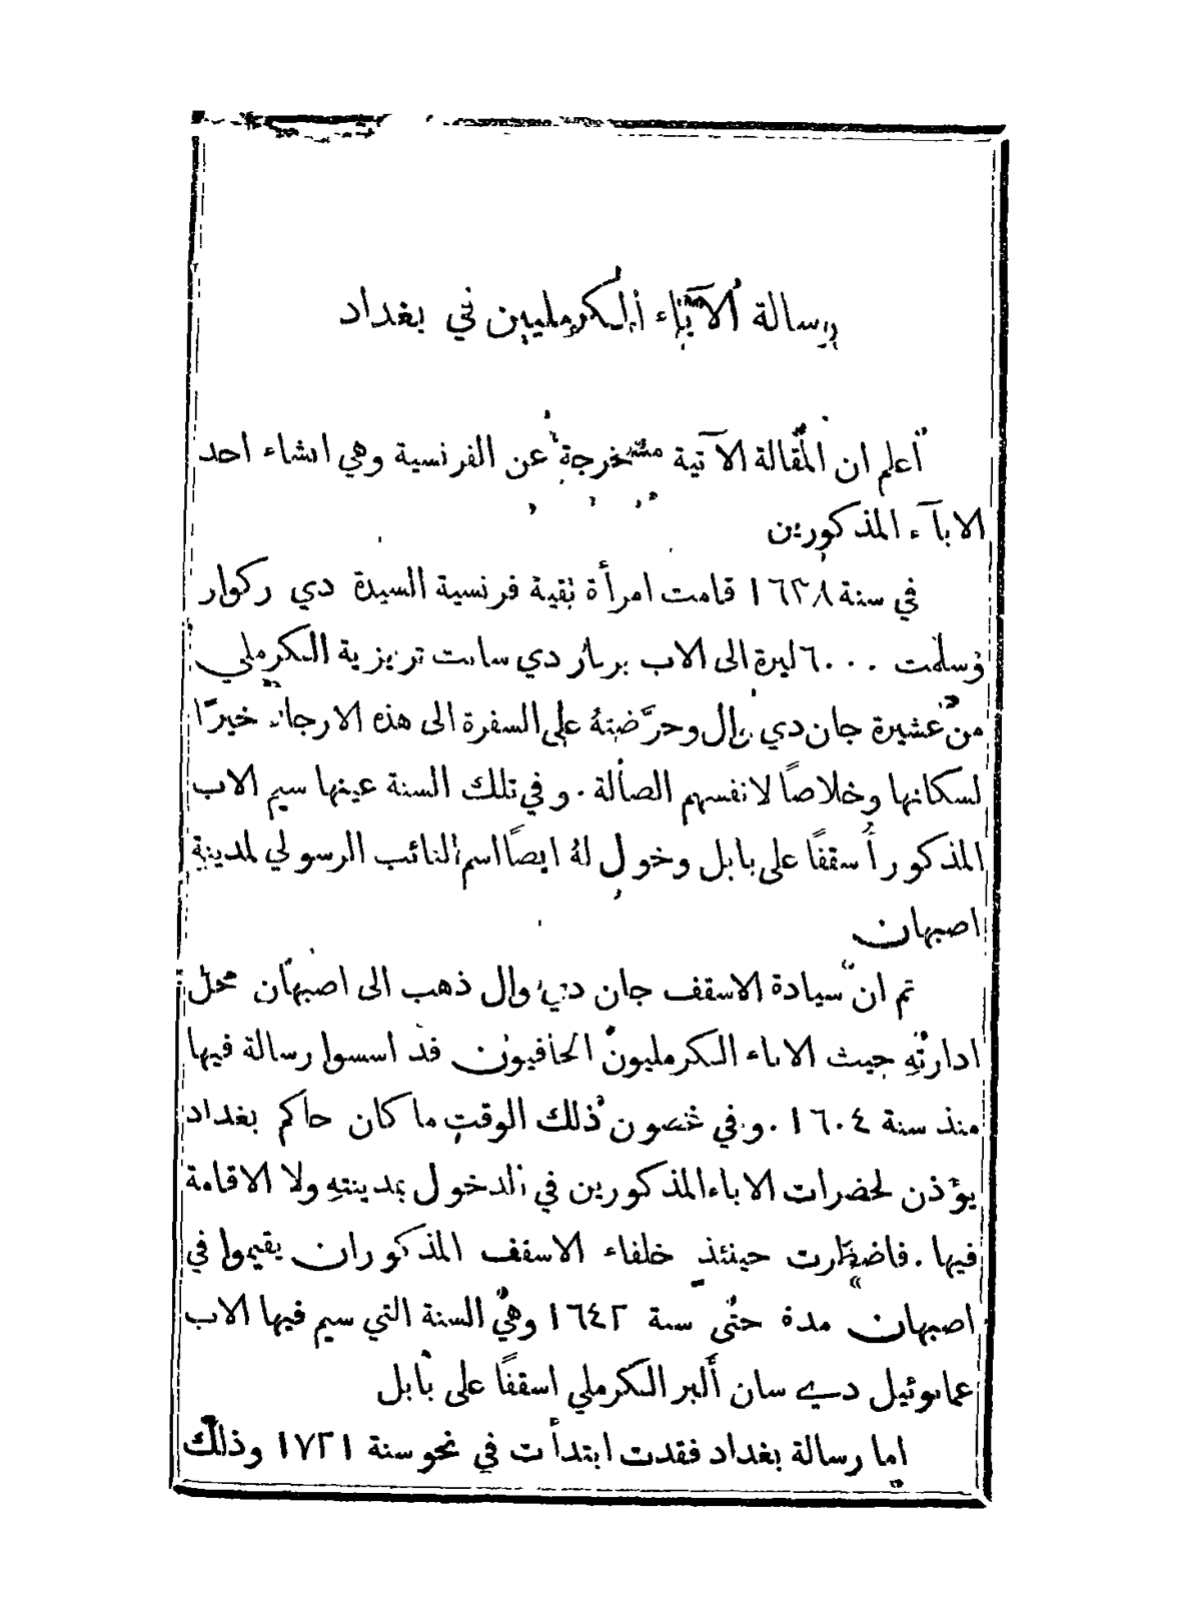 رسالة الآباء الكرمليين في بغداد
أعلم ان المقالة الآتية مستخرجة عن الفرنسية وهي انشاء احد
الاباآء المذكورين
في سنة ١٦٣٨ قامت امرأة تقية فرنسية السيدة دي ركوار
وسلمت ٦٠٠٠ ليرة الى الاب برنار دي سانت تريزية الكرملي
من عشيرة جان دي وال وحرَّضتهُ على السفرة الى هذه الارجاء خيرًا
لسكانها وخلاصًا لانفسهم الضالة . وفي تلك السنة عينها سيم الاب
المذكور أُسقفًا على بابل وخول لهُ ايضًا اسم النائب الرسولي لمدينة
اصبهان
ثم ان سيادة الاسقف جان دي وال ذهب الى اصبهان محل
ادارتهِ حيث الاباء الكرمليون الحافيون قد اسسوا رسالة فيها
منذ سنة ١٦٠٤ . وفي غضون ذلك الوقت ما كان حاكم بغداد
يؤذن لحضرات الاباء المذكورين في الدخول بمدينتهِ ولا الاقامة
فيها . فاضطرت حينئذٍ خلفاء الاسقف المذكور ان يقيموا في
اصبهان مدة حتى سنة ١٦٤٢ وهي السنة التي سيم فيها الاب
عمانوئيل دي سان ألبر الكرملي اسقفًا على بابل
اما رسالة بغداد فقدت ابتدأت في نحو سنة ١٧٢١ وذلك